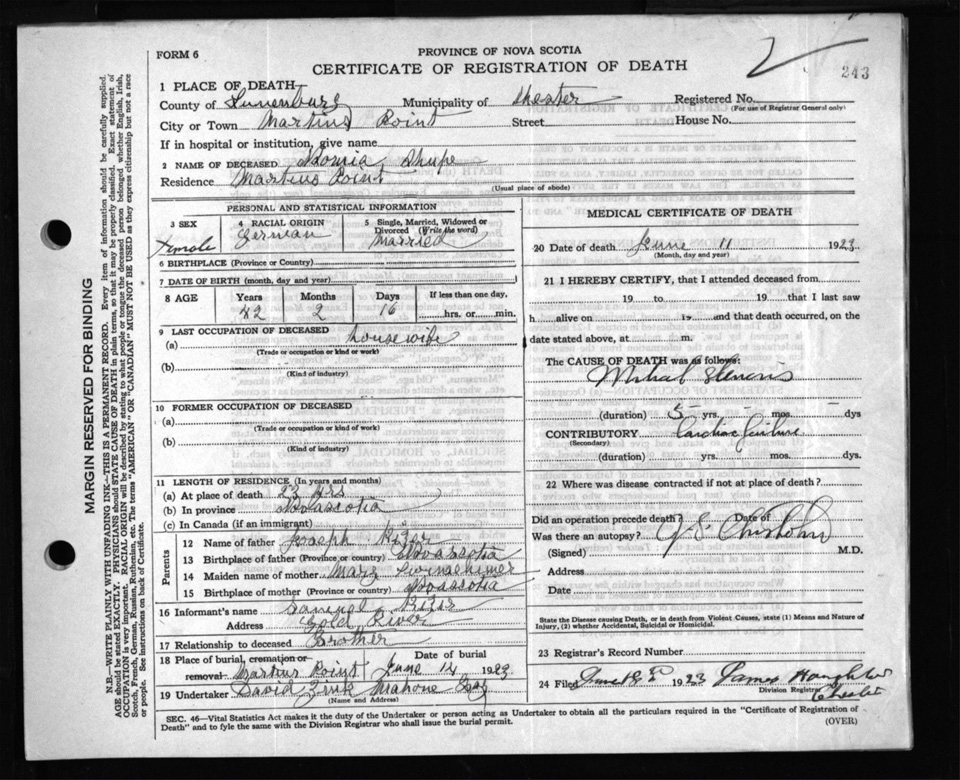 FORM 6
PROVINCE OF NOVA SCOTIA
CERTIFICATE OF REGISTRATION OF DEATH
243
1 PLACE OF DEATH
County of Lunenburg Municipality of Chester Registered No.
(For use of Registrar General only)
City or Town Martins Point Street House No.
If in hospital or institution, give name
2 NAME OF DECEASED Shupe
Residence Martins Point
(Usual place of abode)
PERSONAL AND STATISTICAL INFORMATION
3 SEX
Female
4 RACIAL ORIGIN
German
5 Single, Married, Widowed or Divorced (Write the word)
Married
6 BIRTHPLACE (Province or Country)
7 DATE OF BIRTH (month, day and year)
8 AGE Years Months Days If less than one day,
42 2 16 hrs. or min.
9 LAST OCCUPATION OF DECEASED
(a) housewife
(Trade or occupation or kind or work)
(b)
(Kind of industry)
10 FORMER OCCUPATION OF DECEASED
(a)
(Trade or occupation or kind of work)
(b)
(Kind of industry)
11 LENGTH OF RESIDENCE (In years and months)
(a) At place of death 23 yrs
(b) In province Novascotia
(c) In Canada (if an immigrant)
Parents
12 Name of father Joseph
13 Birthplace of father (Province or country) Novascotia
14 Maiden name of mother Mary
15 Birthplace of mother (Province or country) Novascotia
16 Informant's name Samuel
Address Gold River
17 Relationship to deceased Brother
18 Place of burial, cremation or removal Martins Point Date of burial June 14 1923
19 Undertaker David Zink Mahone Bay
(Name and Address)
MEDICAL CERTIFICATE OF DEATH
20 Date of death June 11 1923
(Month, day and year)
21 I HEREBY CERTIFY, that I attended deceased from
19 to 19 that I last saw
h alive on 19 and that death occurred, on
date stated above, at m.
The CAUSE OF DEATH was as follows:
Mitral Stenosis
(duration) 5 yrs. - mos. - dys
CONTRIBUTORY Cardiac failure
(Secondary)
(duration) yrs. mos. dys.
22 Where was disease contracted if not at place of death?
Did an operation precede death? Date of
Was there an autopsy?
(Signed) Chisholm M.D.
Address
Date
State the Disease causing Death, or in death from Violent Causes, state (1) Means and Nature of Injury, (2) whether Accidental, Suicidal or Homicidal.
23 Registrar's Record Number
24 Filed June 1923 James
Division Registrar
Chester
SEC. 46—Vital Statistics Act makes it the duty of the Undertaker or person acting as Undertaker to obtain all the particulars required in the "Certificate of Registration of
Death" and to fyle the same with the Division Registrar who shall issue the burial permit.
(OVER)
MARGIN RESERVED FOR BINDING
N.B.—WRITE PLAINLY WITH UNFADING INK—THIS IS A PERMANENT RECORD. Every item of information should be carefully supplied.
AGE should be stated EXACTLY. PHYSICIANS should STATE CAUSE OF DEATH in plain terms, so that it may be properly classified. Exact statement of
OCCUPATION is very important. RACIAL ORIGIN will be described by stating to what people or tongue the deceased person belonged whether English, Irish,
Scotch, French, German, Russian, Ruthenian, etc. The terms "AMERICAN" OR "CANADIAN" MUST NOT BE USED as they express citizenship but not a race
or people. See instructions on back of Certificate.